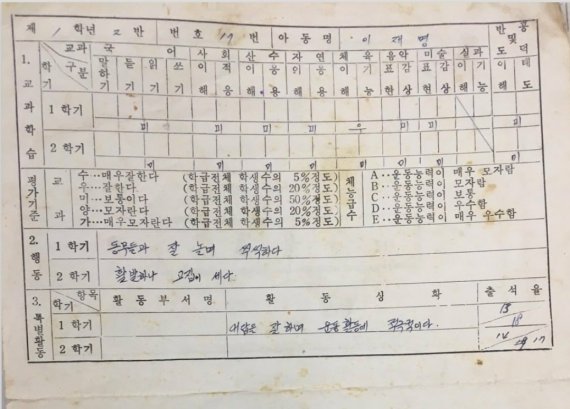 제 1 학년 2 반 번호 17 번 아동명 이재명
1. 교과학습
교과 국어 사회 산수 자연 체육 음악 미술 실과 반공 및 도덕
학기 구분 말하기 듣기 읽기 쓰기 이해 적응 이해 응용 이해 응용 이해 기능 표현 감상 표현 감상 이해 기능 이해 태도
1 학기
미 미 미 미 우 미 미 미
2 학기
미 미 미 미 미 미 미 미
평가기준 교과 체능급수
수…매우잘한다 (학급전체 학생수의 5%정도) A…운동능력이 매우 모자람
우…잘한다 (학급전체 학생수의 20%정도) B…운동능력이 모자람
미…보통이다 (학급전체 학생수의 50%정도) C…운동능력이 보통
양…모자란다 (학급전체 학생수의 20%정도) D…운동능력이 우수함
가…매우모자란다 (학급전체 학생수의 5%정도) E…운동능력이 매우 우수함
2. 행동
1 학기 동무들과 잘 놀며 착실하다
2 학기 활발하나 고집이 세다.
3. 특별활동
학기 항목 활동부서명 활동상황 출석율
1 학기 대답은 잘 하며 운동 활동에 적극적이다.
2 학기